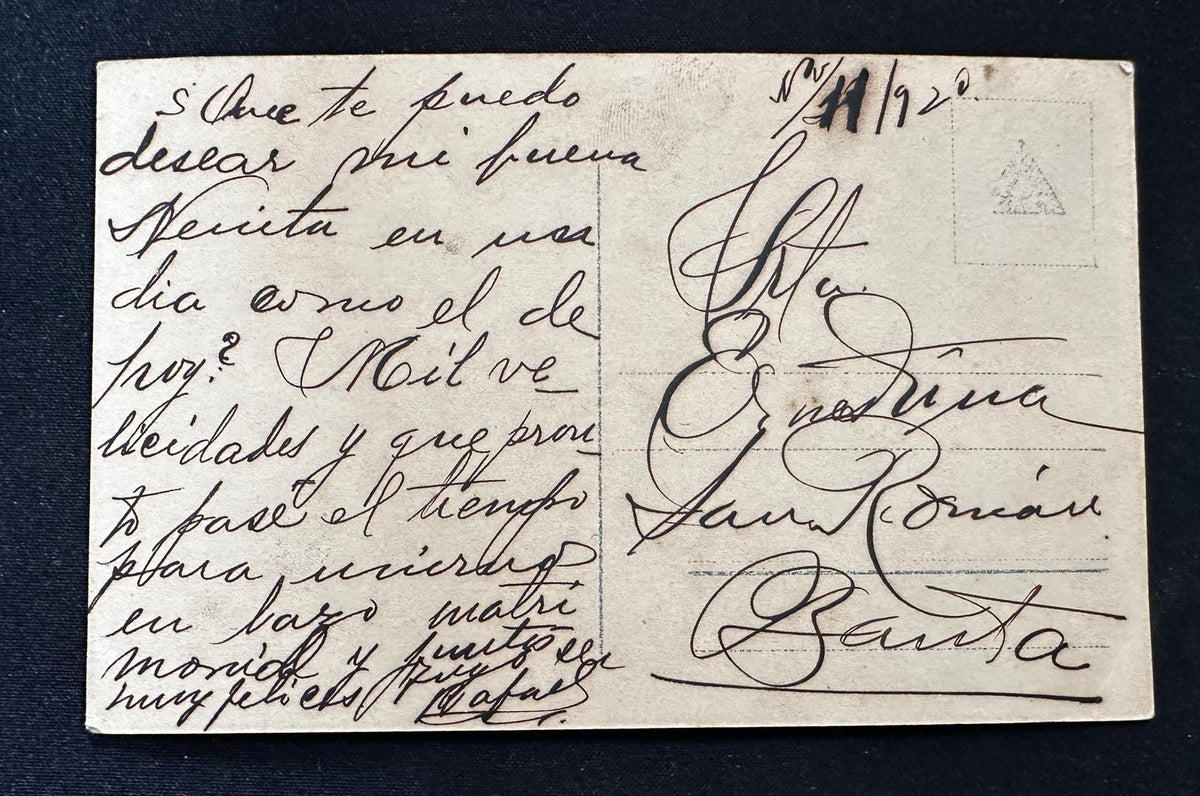 ¿Que te puedo
desear mi buena
Nenita en un
dia como el de
hoy? Mil fe
licidades y que pron
to pase el tiempo
para unirnos
en lazo matri
monial y juntos ser
muy felices tuyo
Rafael
Nov/11/920
Srta.
Ernestina
San Román
Banta